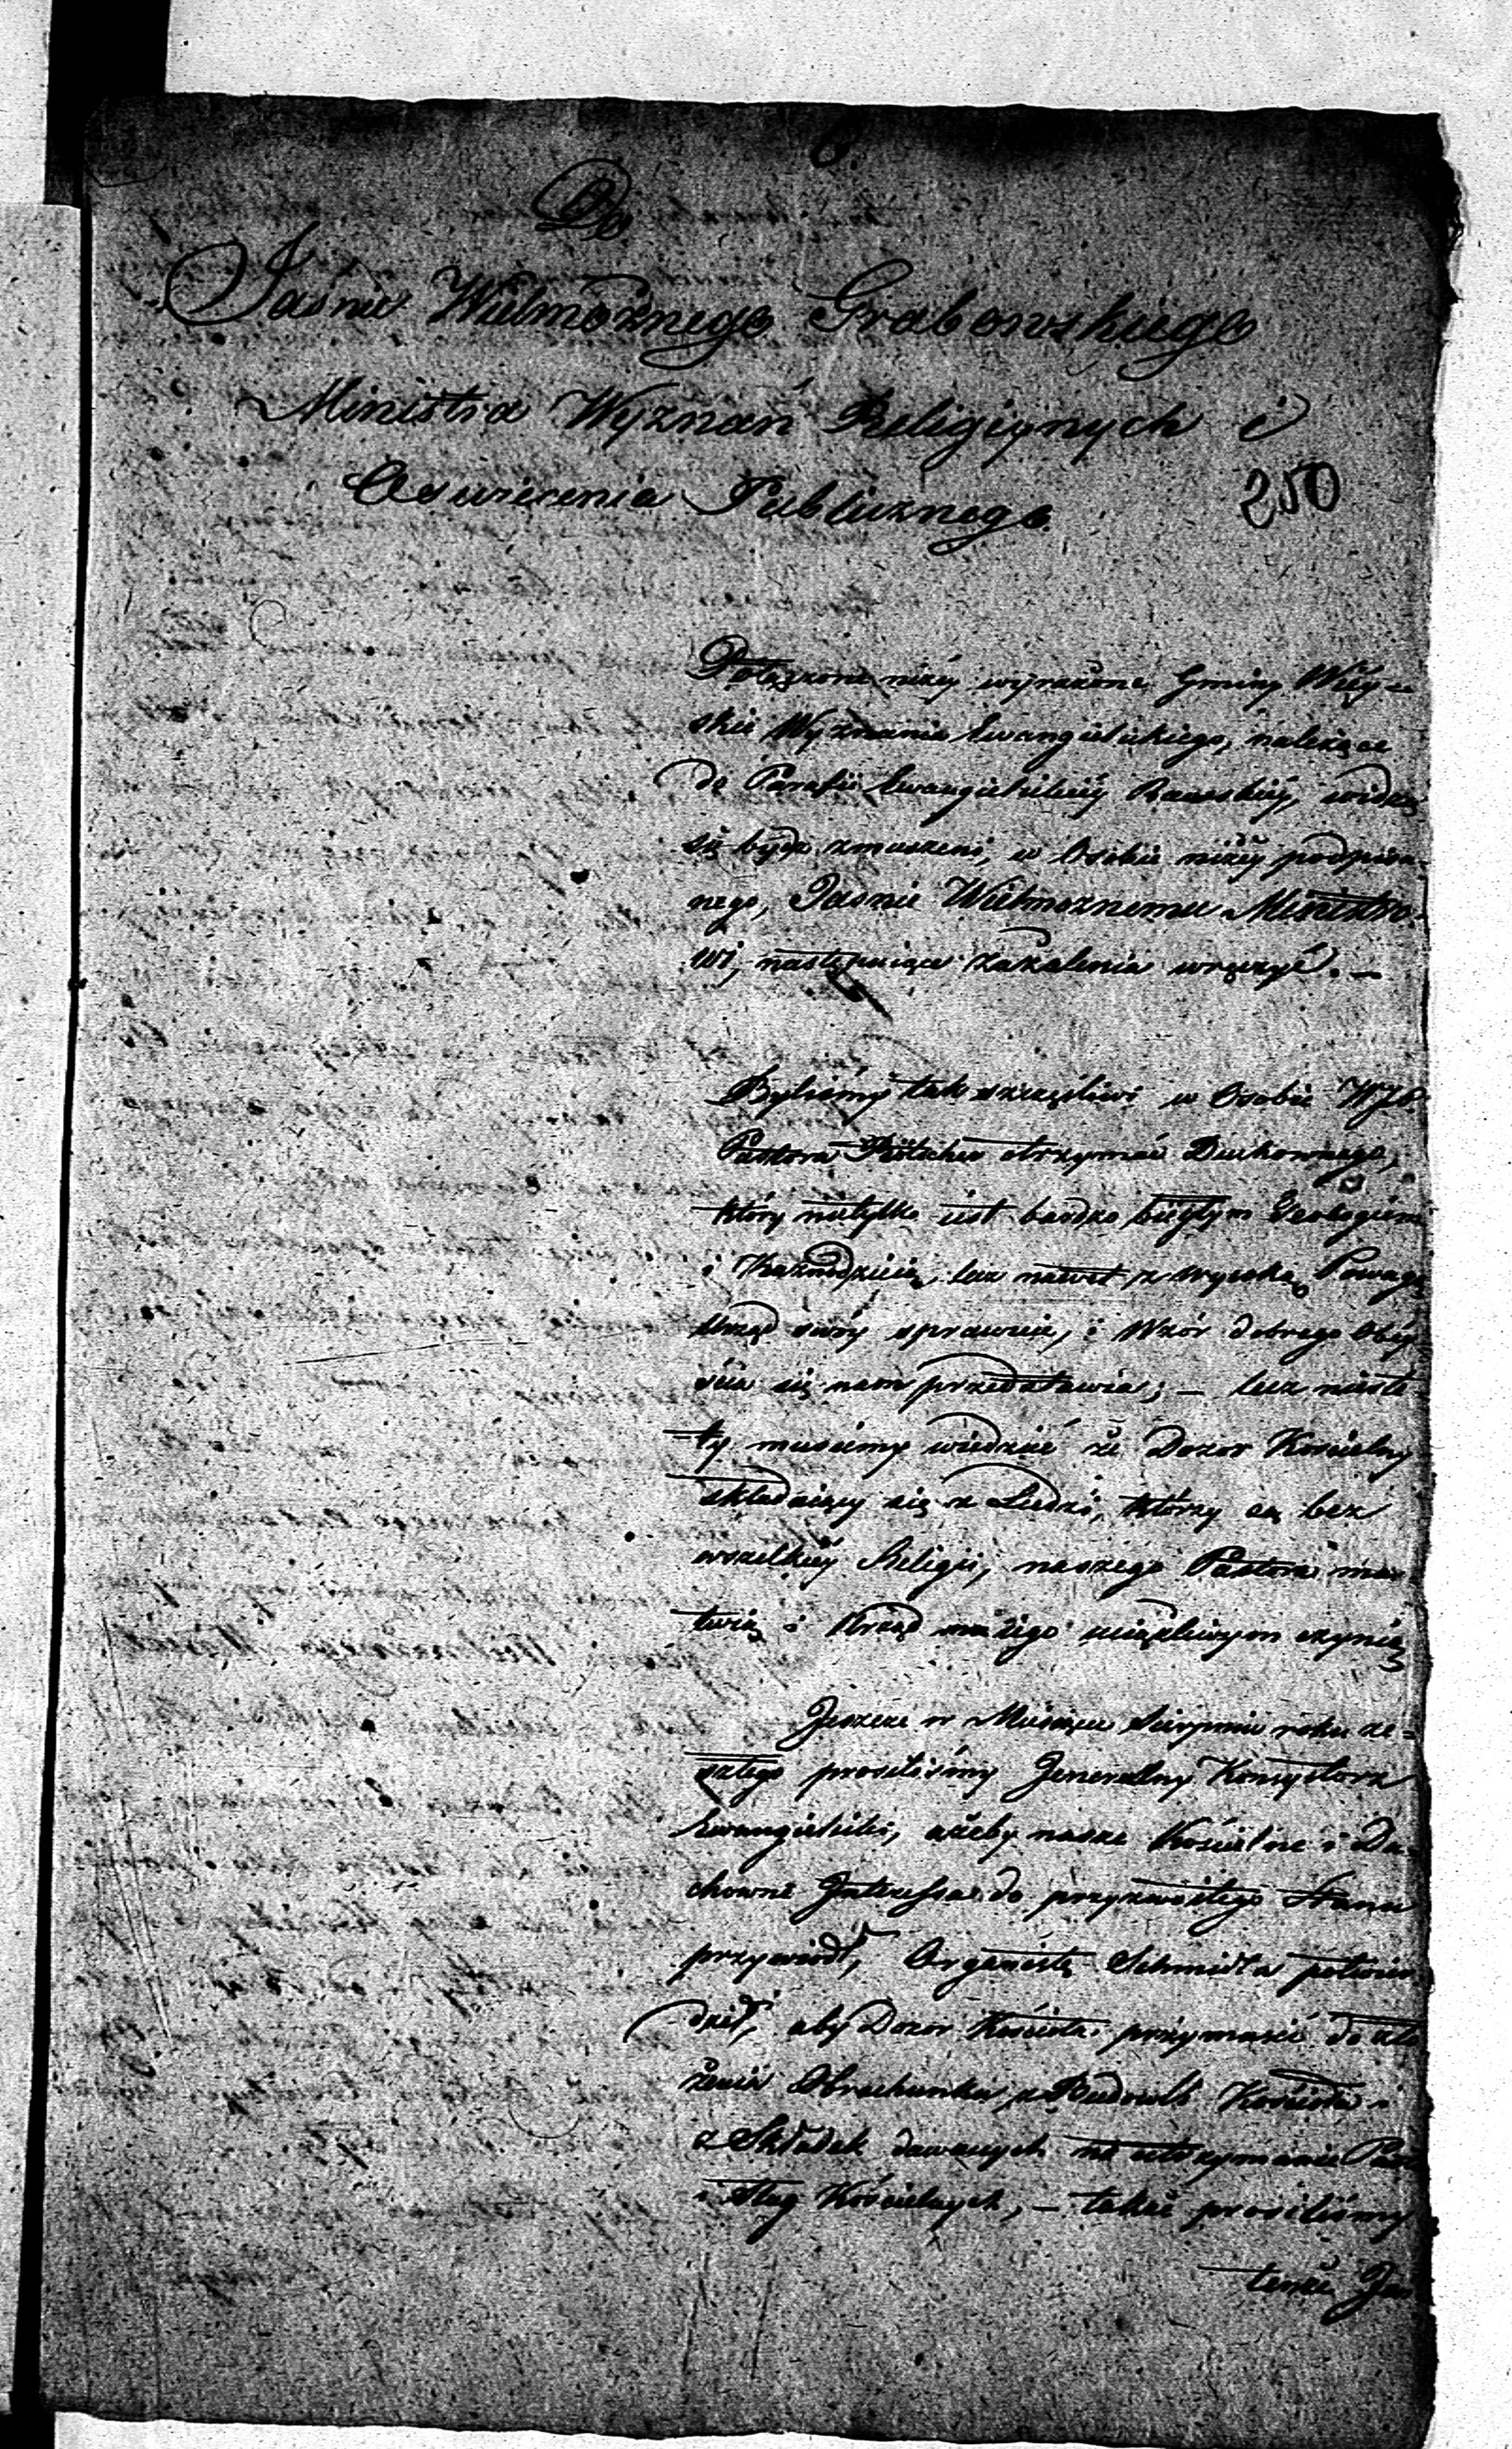 Do
Jaśnie Wielmożnego Grabowskiego
Ministra Wyznań Religiynych i
Oswiecenia Publicznego
250
Połączone niżey wyrażone Gminy Wiey-
skie Wyznania Ewangielickiego, należące
do Parafii Ewangielickiéy Rawskiéy, widzą
się bydź zmuszeni, w Osobie niżéy podpisa-
nego, Jasnie Wielmoznemu Ministro-
wi, następuiące zażalenia wręczyć. —
Byliśmy tak szczęśliwi w Osobie
Pastora otrzymać Duchownego,
który nietylko iest bardzo biegłym Teologiem
i Kaznodzieią, lecz nawet z wysoką Powagą
Urząd swóy sprawuie, i Wzór dobrego Obéy
ścia się nam przedstawia; — lecz nieste
ty musiemy wiedzieć że Dozor Kościelny
składaiący się z Ludzi, którzy są bez
wszelkiéy Religii, naszego Pastora mar
twią i Urząd iego uciążliwym czynią
Jeszcze w Miesiącu Sierpniu roku ze-
szłego prosiliśmy Generalny Konsystorz
Ewangielicki, ażeby nasze Kościelne i Du-
chowne Interessa do przyzwoitego Stanu
przywiódł, Organistę Schmidta potwier
dził, aby Dozor Kościoła przymusić do zło
żenia Obrachunku z Budowli Kościoła i
z Składek dawanych na utrzymanie Past
i Sług Kościelnych, — także prosiliśmy
tenże